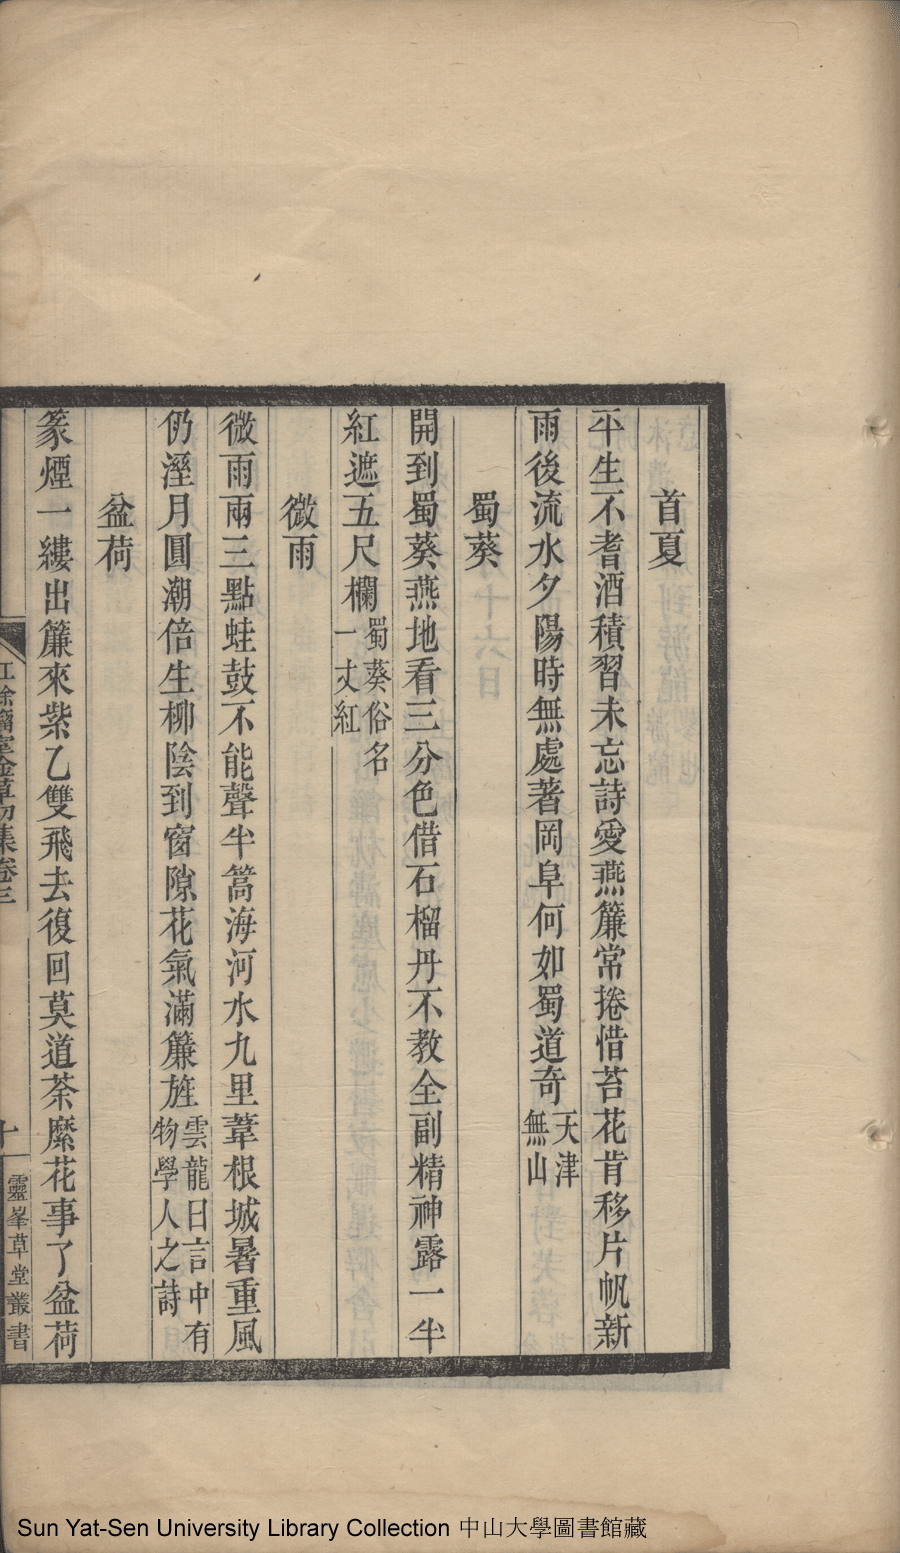 首夏
平生不耆酒積習未忘詩愛燕簾常捲惜苔花肯移片帆新
雨後流水夕陽時無處著岡阜何如蜀道奇天津無山
蜀葵
開到蜀葵燕地看三分色借石榴丹不教全副精神露一半
紅遮五尺欄蜀葵俗名一丈紅
微雨
微雨兩三點蛙鼓不能聲半篙海河水九里葦根城暑重風
仍溼月圓潮倍生柳陰到窗隙花氣滿簾旌雲龍日言中有物學人之詩
盆荷
篆煙一縷出簾來紫乙雙飛去復回莫道荼縻花事了盆荷
集卷三
十
靈峯草堂叢書
Sun Yat-Sen University Library Collection 中山大學圖書館藏